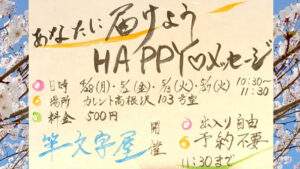 あなたに届けよう
HAPPY♡メッセージ
日時 4/28(月)・5/2(金)・5/13(火)・5/27(火) 10:30〜11:30
場所 カレント高根沢 103号室
料金 500円
筆文字屋 開催
出入り自由
予約不要
11:30まで